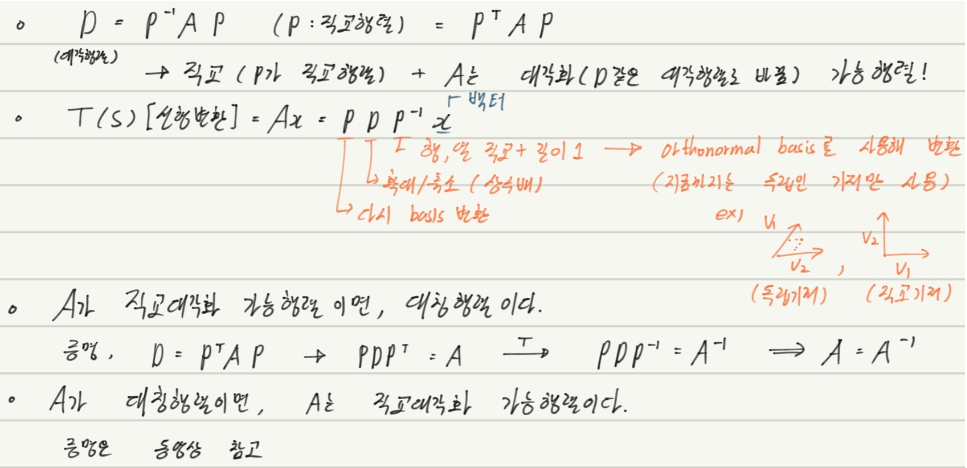 ◦ D = P⁻¹ A P (P : 직교행렬) = Pᵀ A P
(대각행렬)
→ 직교 (P가 직교행렬) + A는 대각화 (D같은 대각행렬로 바뀜) 가능행렬!
• T(S) [선형변환] = Ax = P D P⁻¹ x
벡터
행, 열 직교 + 길이 1 → orthonormal basis로 사용해 변환
확대/축소 (상수배) (지금까지는 독립인 기저만 사용)
다시 basis 변환
ex)
V₁ V₂
V₂ , V₁
(독립기저) (직교기저)
◦ A가 직교대각화 가능행렬 이면, 대칭행렬 이다.
증명, D = PᵀA P → PDPᵀ = A →ᵀ PDP⁻¹ = A⁻¹ ⟹ A = A⁻¹
• A가 대칭행렬이면, A는 직교대각화 가능행렬이다.
증명은 동영상 참고